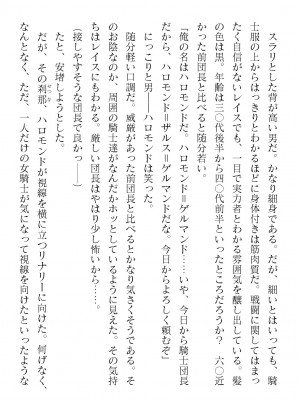 スラリとした背が高い男だ。かなり細身である。だが、細いとはいっても、騎
士服の上からはっきりとわかるほどに身体付きは筋肉質だ。戦闘に関してはまっ
たく自信がないレイスでも、一目で実力者とわかる雰囲気を醸し出している。髪
の色は黒。年齢は三〇代後半から四〇代前半といったところだろうか？　六〇近
かった前団長と比べると随分若い。
「俺の名はハロモンドだ。ハロモンド＝ザルス＝ゲルマンドだな。今日から騎士団長
だから、ハロモンド＝ゲルマンド……いや、今日からよろしく頼むぞ」
にっこりと男――ハロモンドは笑った。
随分軽い口調だ。威厳があった前団長と比べるとかなり気さくそうである。そ
のお陰なのか、周囲の騎士達がなんだかホッとしているように見えた。その気持
ちはレイスにもわかる。厳しい団長はやはり少し怖いから……。
（接しやすそうな団長で良かった）
と、安堵しようとした。
だが、その刹那、ハロモンドが視線を横に立つリナリーに向けた。何げなく、
なんとなく、ただ、一人だけの女騎士が気になって視線を向けたといったような